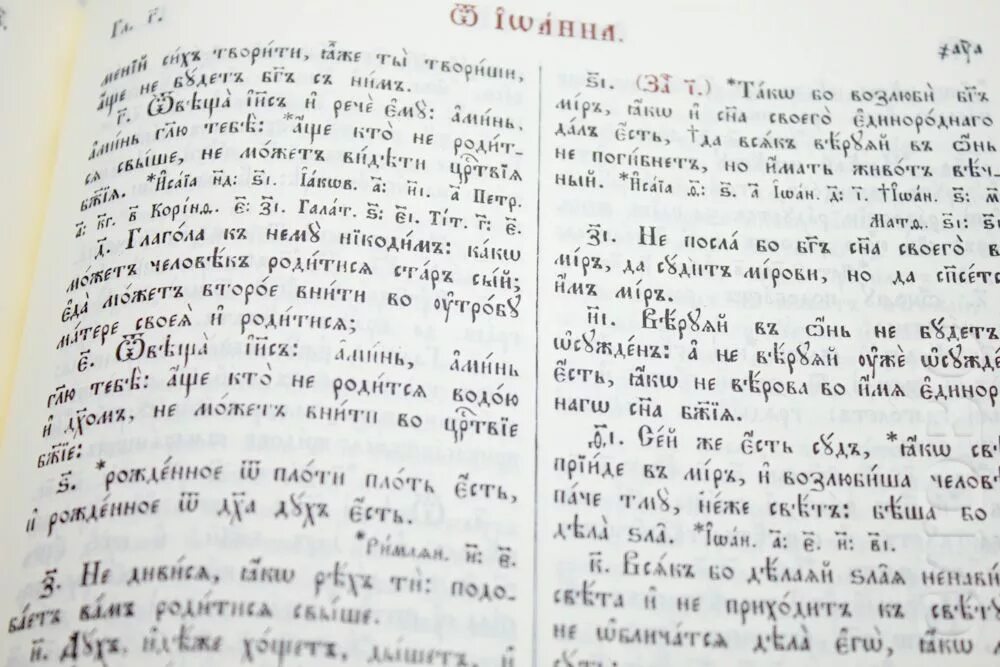 Гл. г҃.
Ѿ Іѡа́нна.
ме́ній си́хъ твори́ти, ꙗ҆̀же ты̀ твори́ши,
а҆́ще не бꙋ́детъ бг҃ъ съ ни́мъ.
г҃. Ѿвѣща̀ і҆и҃съ и҆ речѐ є҆мꙋ̀: а҆ми́нь,
а҆ми́нь гл҃ю тебѣ̀: *а҆́ще кто̀ не роди́т-
сѧ свы́ше, не мо́жетъ ви́дѣти црⷭ҇твїѧ
бж҃їѧ. *И҆са́їа н҃д: ѕ҃і. І҆а́кѡв. а҃: и҃і. а҃ Петр.
а҃: кг҃. в҃ Корі́нѳ. є҃: з҃і. Гала́т. ѕ҃: є҃і. Ті́т. г҃: є҃.
д҃. Глаго́ла къ немꙋ̀ нїкоди́мъ: ка́кѡ
мо́жетъ человѣ́къ роди́тисѧ ста́ръ сы́й;
є҆да̀ мо́жетъ второ́е вни́ти во ᲂу҆тро́бꙋ
ма́тере своеѧ̀ и҆ роди́тисѧ;
є҃. Ѿвѣща̀ і҆и҃съ: а҆ми́нь, а҆ми́нь
гл҃ю тебѣ̀: а҆́ще кто̀ не роди́тсѧ водо́ю
и҆ дх҃омъ, не мо́жетъ вни́ти во црⷭ҇твїе
бж҃їе:
ѕ҃. *рожде́нное ѿ пло́ти пло́ть є҆́сть,
и҆ рожде́нное ѿ дх҃а дꙋ́хъ є҆́сть.
*Ри́млѧн. и҃: є҃.
з҃. Не диви́сѧ, ꙗ҆́кѡ рѣ́хъ тѝ: подо-
ба́етъ ва́мъ роди́тисѧ свы́ше.
и҃. Дꙋ́хъ, и҆дѣ́же хо́щетъ, ды́шетъ, и҆
ѕ҃і. (За҃ і҃.) *Та́кѡ бо возлюбѝ бг҃ъ
мі́ръ, ꙗ҆́кѡ и҆ сн҃а своего̀ є҆диноро́днаго
да́лъ є҆́сть, †да всѧ́къ вѣ́рꙋѧй въ ѻ҆́нь
не поги́бнетъ, но и҆́мать живо́тъ вѣ́ч-
ный. *И҆са́їа ѳ҃: ѕ҃. а҃ І҆ѡа́н. д҃: †І҆ѡа́н. ѕ҃: м҃
Матѳ. ѕ҃і: ѕ҃і
з҃і. Не посла́ бо бг҃ъ сн҃а своегѡ̀ в
мі́ръ, да сꙋ́дитъ мі́рови, но да спⷭ҇е́тсѧ
и҆́мъ мі́ръ.
и҃і. Вѣ́рꙋѧй въ ѻ҆́нь не бꙋ́детъ
ѡ҆сꙋжде́нъ: а҆ не вѣ́рꙋѧй ᲂу҆жѐ ѡ҆сꙋжде́
є҆́сть, ꙗ҆́кѡ не вѣ́рова во и҆́мѧ є҆динор
нагѡ сн҃а бж҃їѧ.
ѳ҃і. Се́й же є҆́сть сꙋ́дъ, *ꙗ҆́кѡ свѣ
прїи́де въ мі́ръ, и҆ возлюби́ша человѣ́
па́че тмꙋ̀, не́же свѣ́тъ: бѣ́ша бо
дѣла̀ ѕла̑. *І҆ѡа́н. а҃: є҃. и҃: в҃і.
к҃. Всѧ́къ бо дѣ́лаѧй ѕла̑ѧ ненави́
свѣ́та и҆ не прихо́дитъ къ свѣ́тꙋ
не ѡ҆блича́тсѧ дѣла̀ є҆гѡ̀, ꙗ҆́кѡ